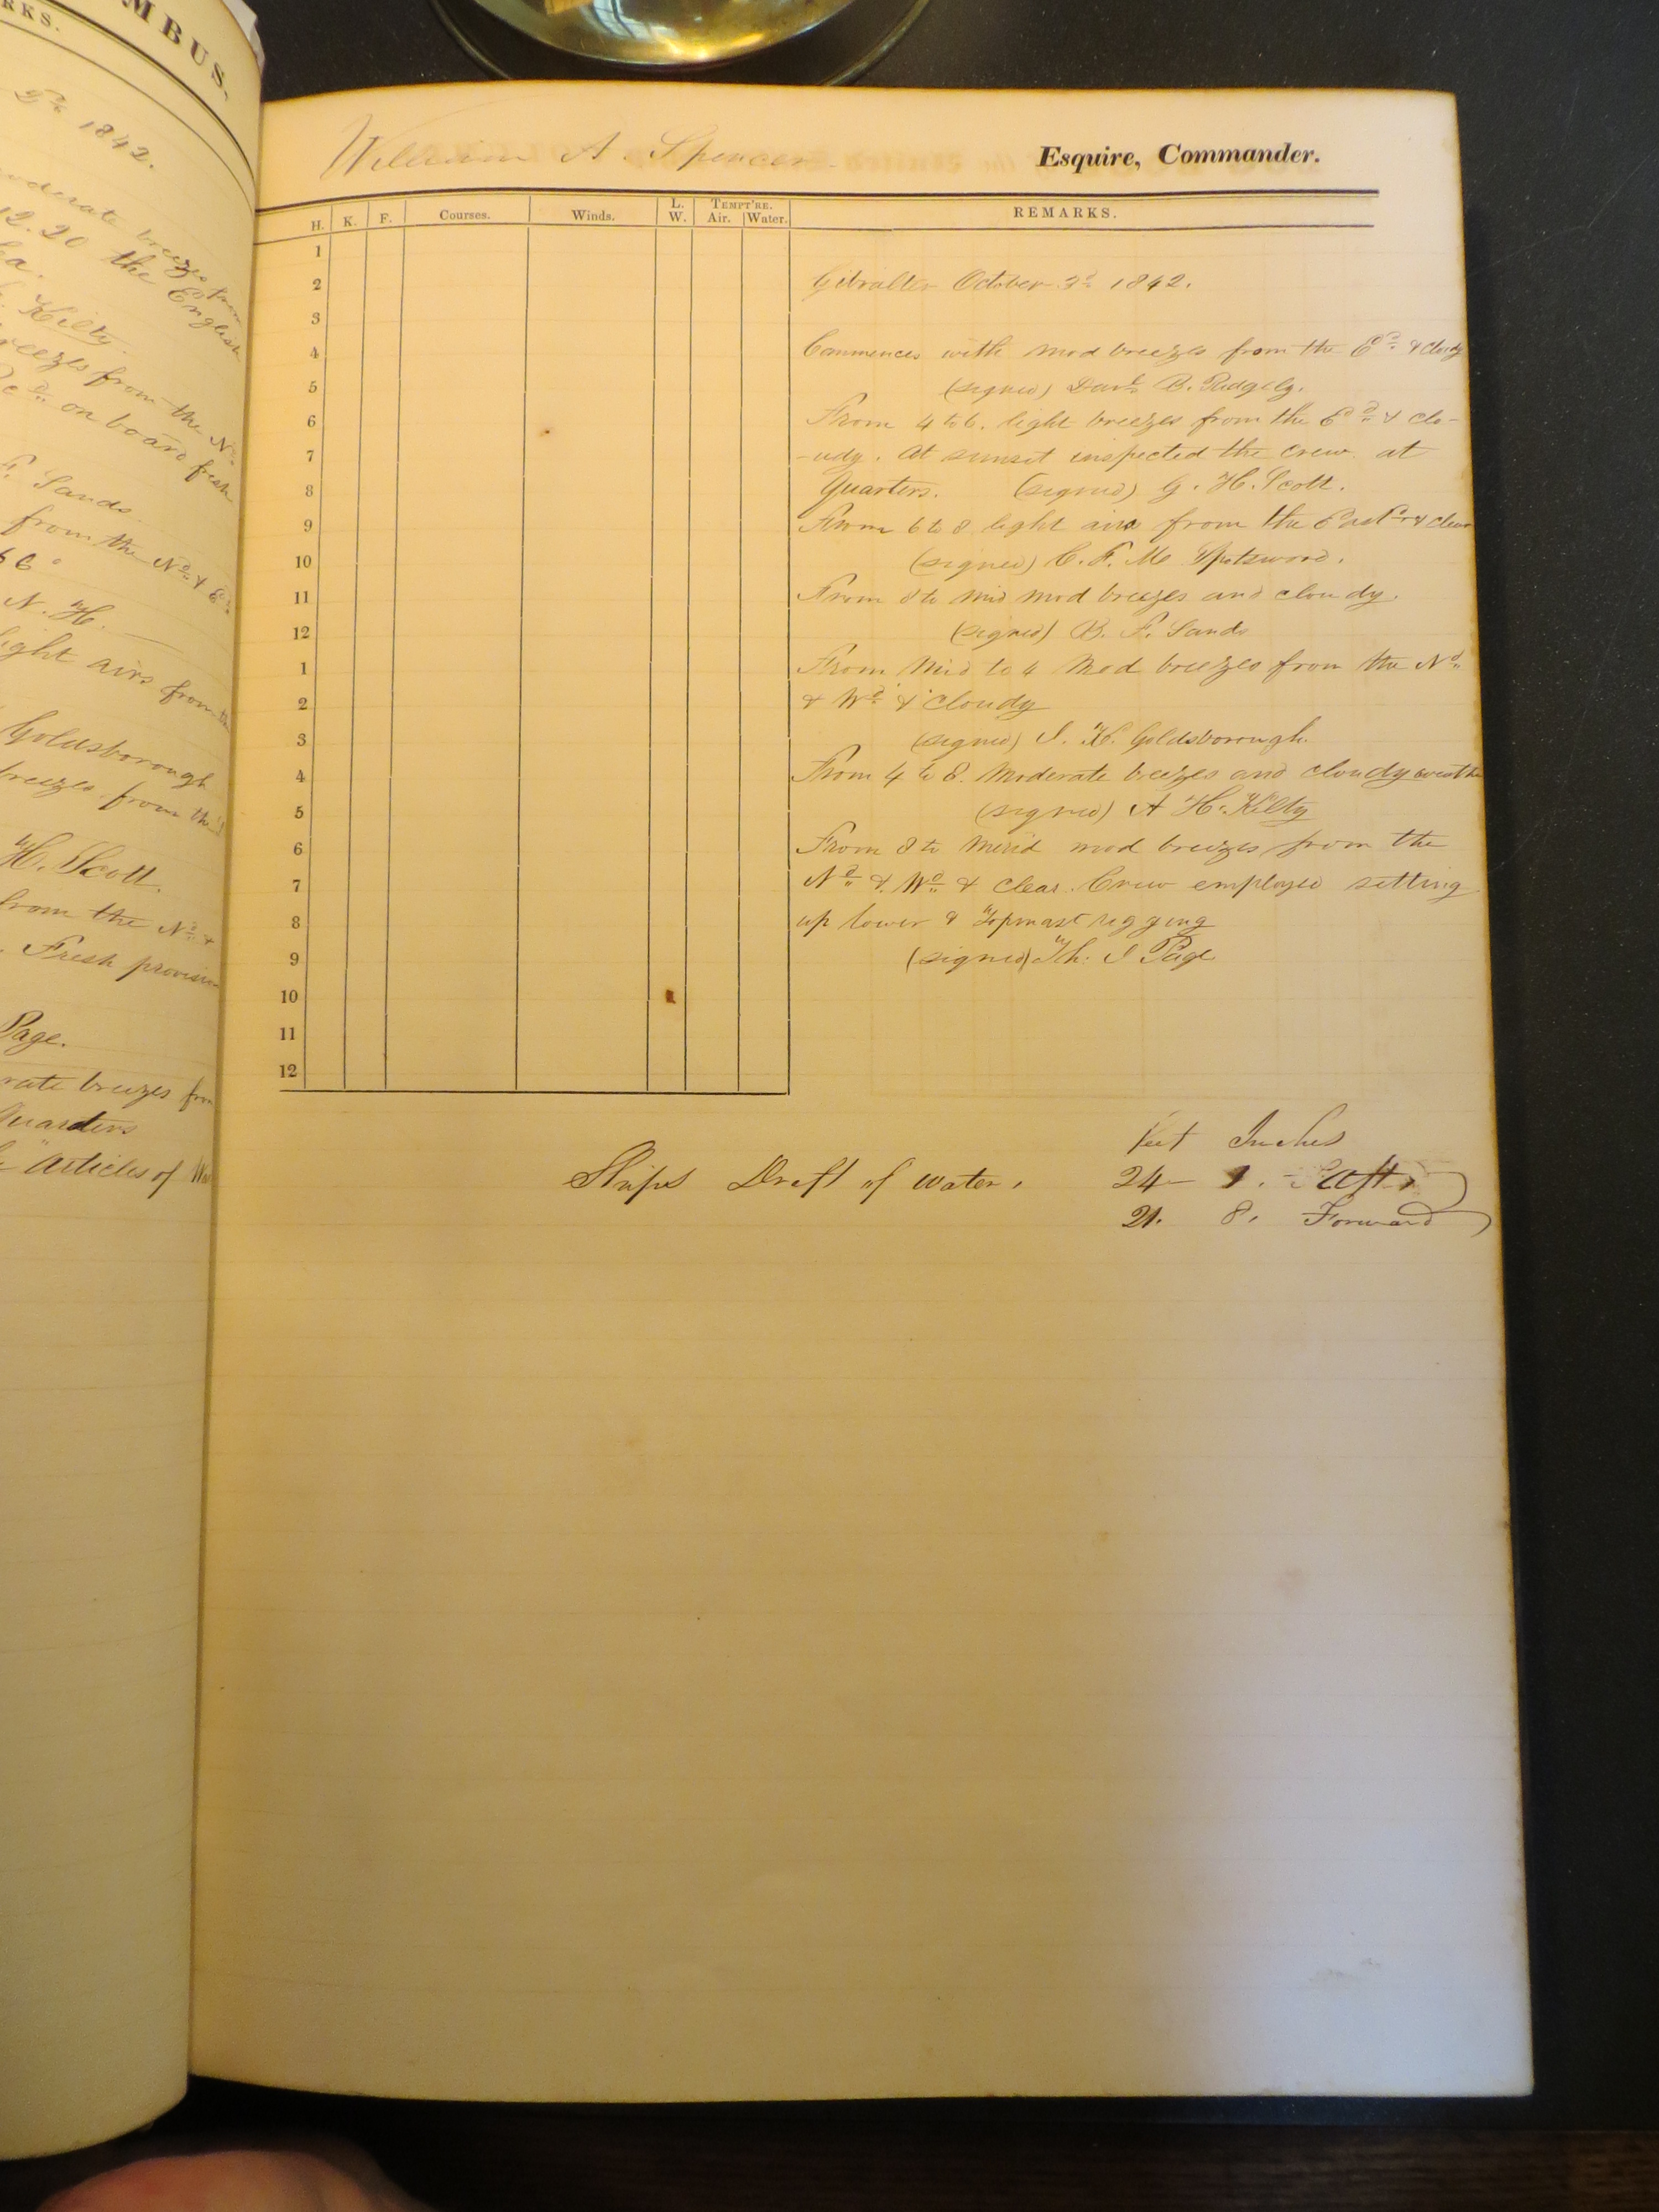 MBUS.
RKS.
2d. 1842.
oderate breezes from
12.20 the English
ea.
Kilty.
reezes from the Nd.
on board fresh
F. Sands
from the Nd. & Ed.
66°
N. H.
ight airs from the
Goldsborough
breezes from the
H. Scott.
from the Nd. &
. Fresh provision
Page.
rate breezes from
Quarters
Articles of War
William A. Spencer Esquire, Commander.
H. K. F. Courses. Winds. L. W. TEMPT'RE. Air. Water. REMARKS.
1
2 Gibralter October 3d. 1842.
3
4 Commences with mod breezes from the Ed. & cloudy
5 (signed) Danl. B. Ridgely.
6 From 4 to 6. light breezes from the Ed. & clo-
7 -udy. At sunset inspected the crew at
8 Quarters. (signed) G. H. Scott.
9 From 6 to 8 light airs from the & clear
10 (signed) C. F. M Spotswood.
11 From 8 to Mid mod breezes and cloudy.
12 (signed) B. F. Sands
1 From Mid to 4 Mod breezes from the Nd.
2 & Wd. & cloudy
3 (signed) J. R. Goldsborough.
4 From 4 to 8. Moderate breezes and cloudy weather
5 (signed) A H. Kilty
6 From 8 to Merid mod breezes from the
7 Nd. & Wd. & clear. Crew employed setting
8 up lower & Topmast rigging
9 (signed) Th. J Page
10
11
12
feet Inches
Ships Draft of Water. 24 1. Aft
21. 8. Forward